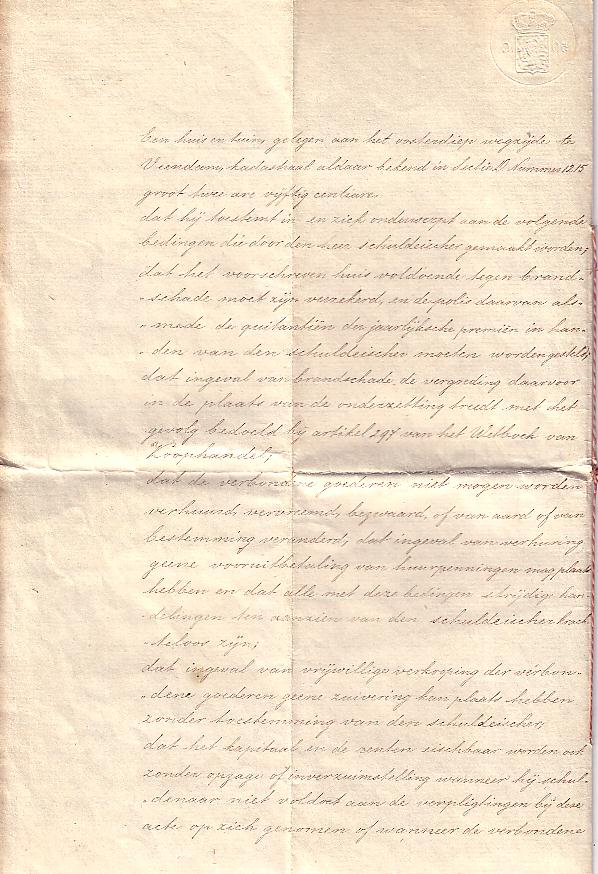 Een huis en tuin, gelegen aan het oosterdiep wegzijde te
Veendam, kadastraal aldaar bekend in Sectie D Nummer 1215
groot twee are vijftig centiare.
dat hij toestemt in en zich onderwerpt aan de volgende
bedingen die door den heer schuldeischer gemaakt worden;
dat het voorschreven huis voldoende tegen brand-
-schade moet zijn verzekerd, en de polis daarvan als-
-mede de quitantiën der jaarlijksche premiën in han-
-den van den schuldeischer moeten worden gesteld;
dat ingeval van brandschade, de vergoeding daarvoor
in de plaats van de onderzetting treedt met het
gevolg bedoeld bij artikel 297 van het Wetboek van
Koophandel;
dat de verbondene goederen niet mogen worden
verhuurd, vervreemd, bezwaard, of van aard of van
bestemming veranderd, dat ingeval van verhuring
geene vooruitbetaling van huurpenningen mag plaats
hebben en dat alle met deze bedingen strijdige han-
delingen ten aanzien van den schuldeischer kracht
-teloos zijn;
dat ingeval van vrijwillige verkooping der verbon-
-dene goederen geene zuivering kan plaats hebben
zonder toestemming van den schuldeischer;
dat het kapitaal en de renten eischbaar worden ook
zonder opzage of inverzuimstelling wanneer hij schul-
-denaar niet voldoet aan de verpligtingen bij deze
acte op zich genomen of wanneer de verbondene